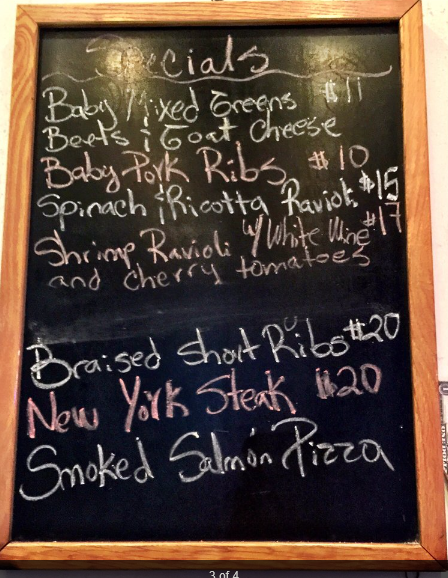 Specials
Baby Mixed Greens $11
Beets & Goat Cheese
Baby Pork Ribs $10
Spinach & Ricotta Ravioli $15
Shrimp Ravioli w/ White Wine $17
and cherry tomatoes
Braised short Ribs $20
New York Steak $20
Smoked Salmon Pizza
3 of 4